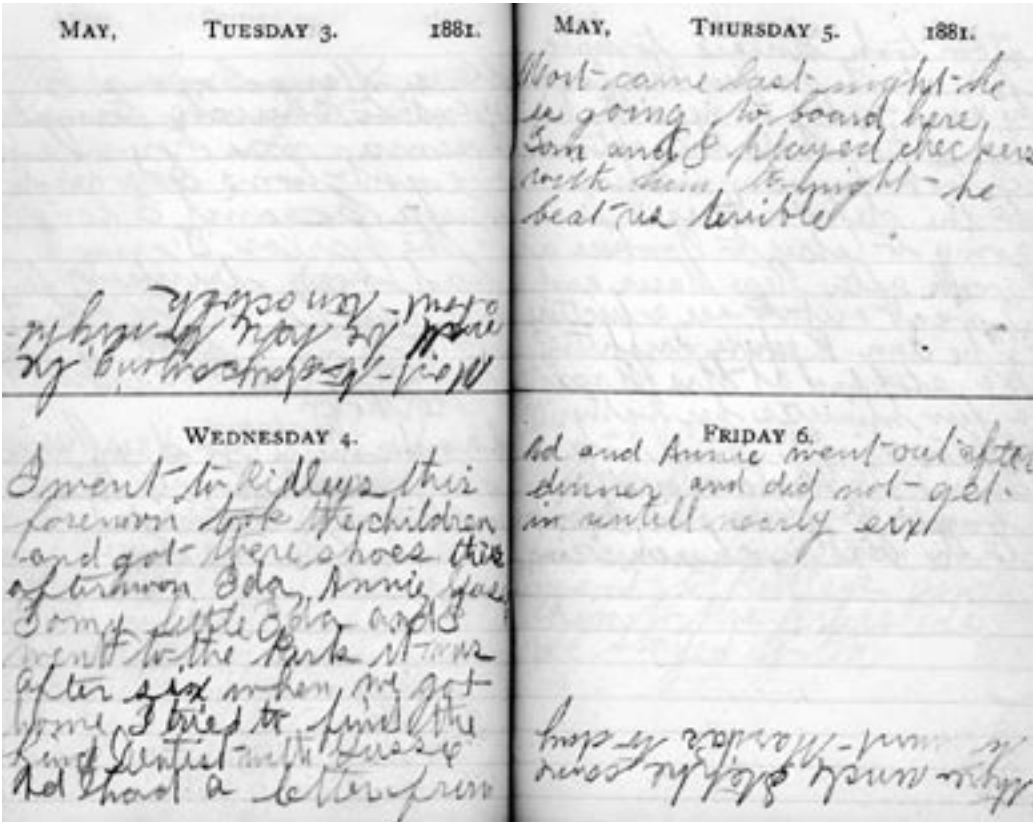 MAY, TUESDAY 3. 1881.
morning, he
will be back to night
about ten oclock
WEDNESDAY 4.
I went to Ridleys this
forenoon took the children
and got there shoes this
afternoon Ida, Annie,
Tomy little Ida and I
went to the Park it was
after six when we got
home I tried to find the
Dentist with
Ad I had a letter from
MAY, THURSDAY 5. 1881.
Mort came last night he
is going to board here
Tom and I played checkers
with him to night he
beat us terrible
FRIDAY 6.
Ad and Annie went out after
dinner and did not get
in untill nearly six
uncle came
to aunt Maria's to day